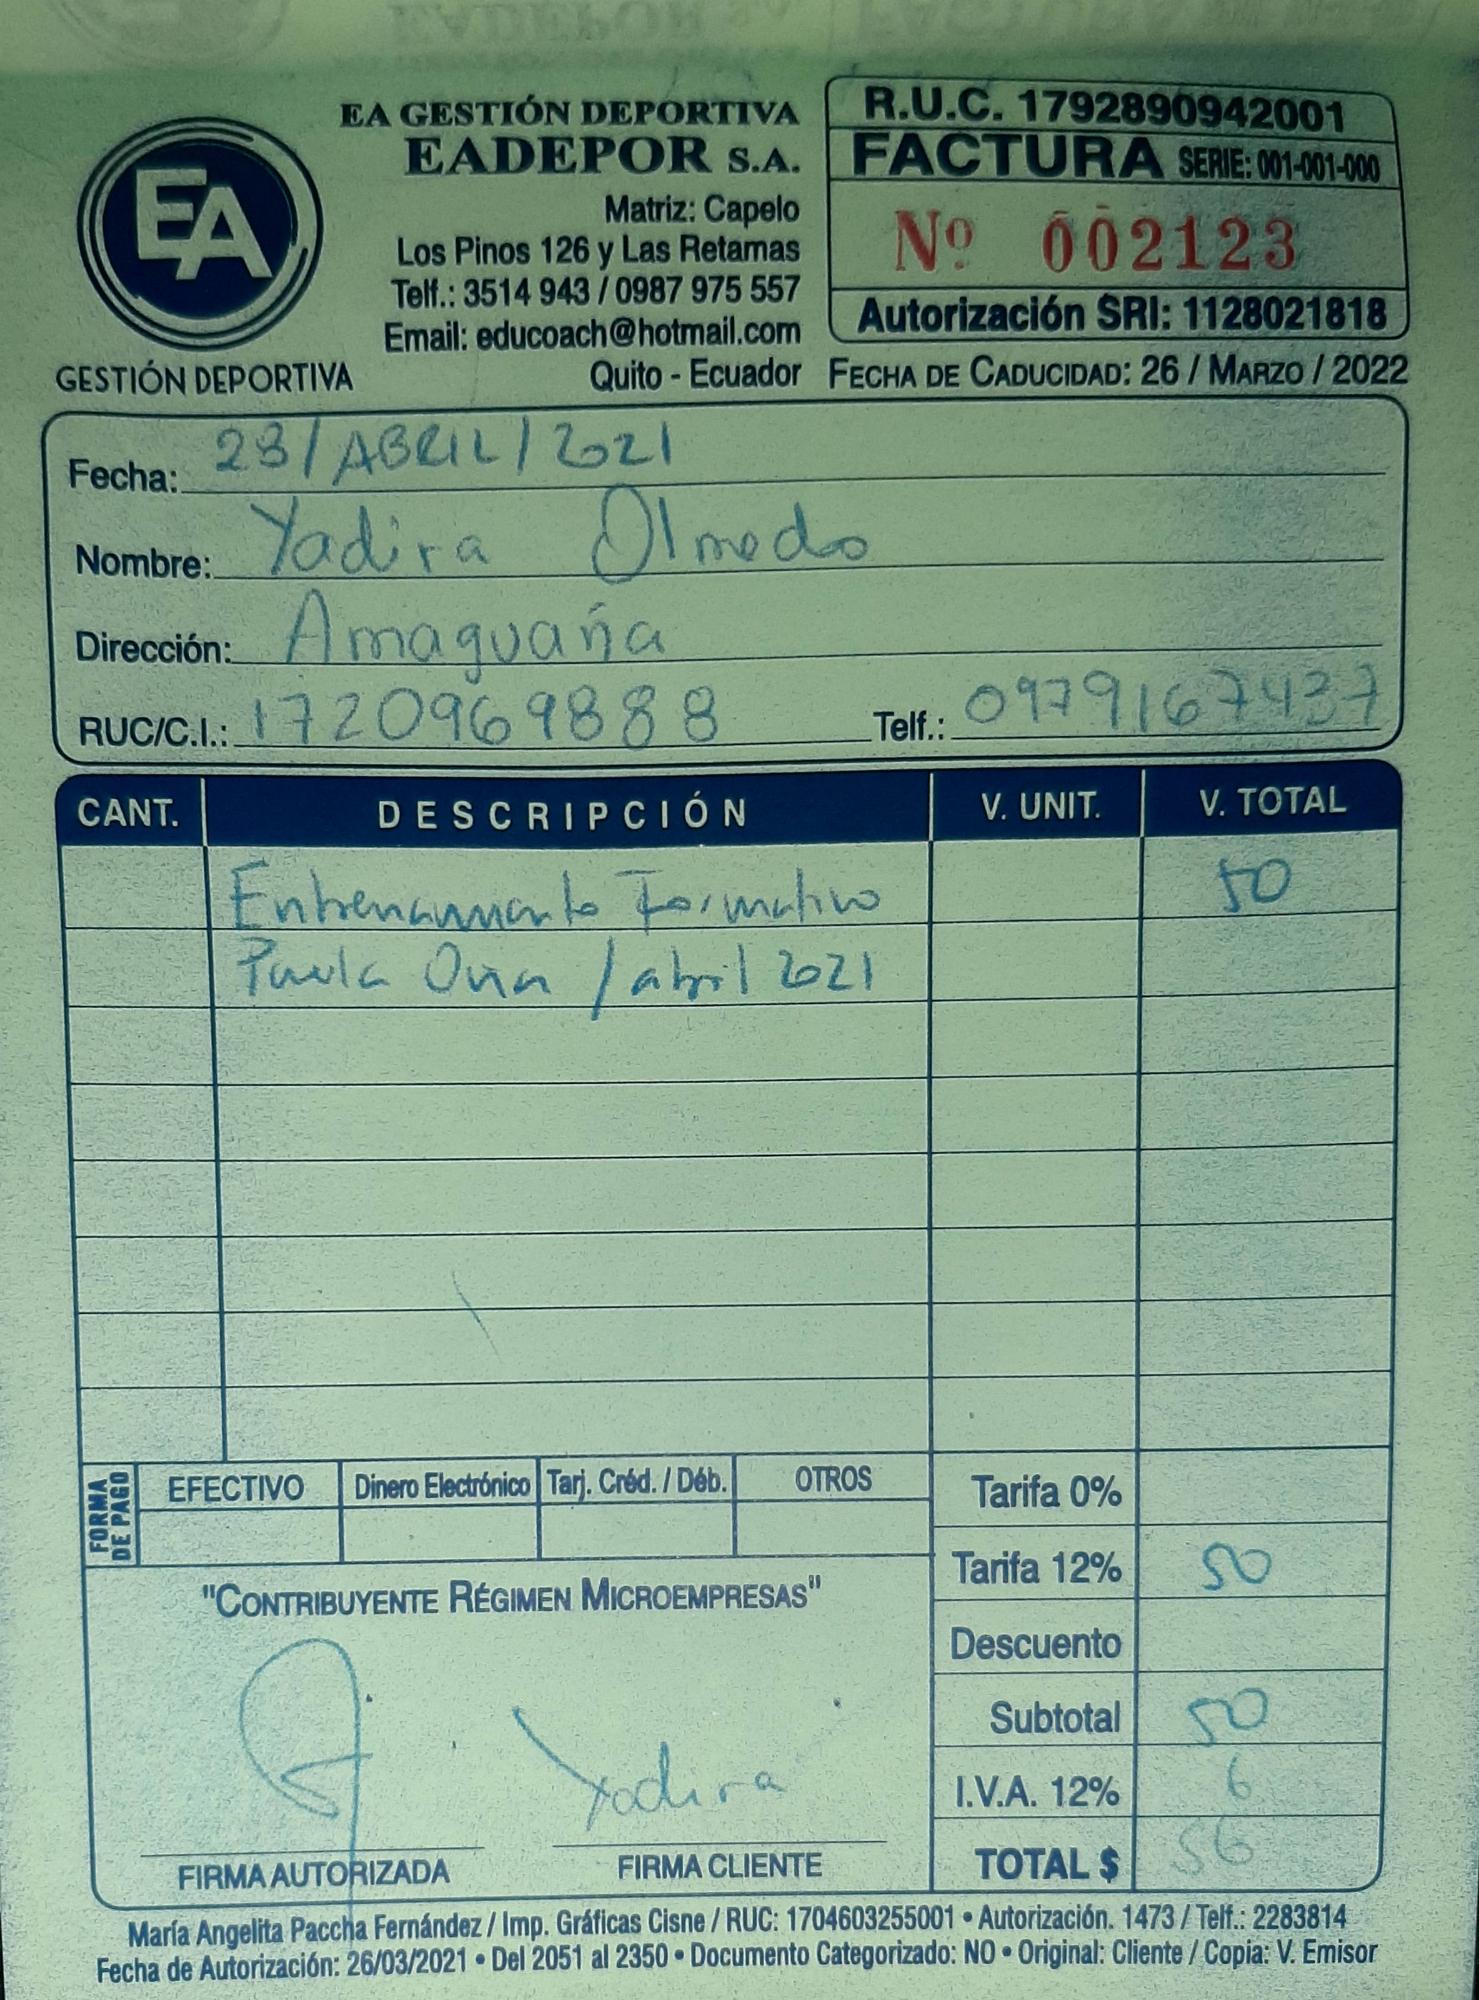 EA GESTIÓN DEPORTIVA
EADEPOR S.A.
Matriz: Capelo
Los Pinos 126 y Las Retamas
Telf.: 3514 943 / 0987 975 557
Email: educoach@hotmail.com
Quito - Ecuador
EA
GESTIÓN DEPORTIVA
R.U.C. 1792890942001
FACTURA SERIE: 001-001-000
Nº 002123
Autorización SRI: 1128021818
FECHA DE CADUCIDAD: 26 / MARZO / 2022
Fecha: 28/ABRIL/2021
Nombre: Yadira Olmedo
Dirección: Amaguaña
RUC/C.I.: 1720969888 Telf.: 0979167437
CANT. DESCRIPCIÓN V. UNIT. V. TOTAL
Entrenamiento Formativo 50
Paula Oña / abril 2021
FORMA DE PAGO EFECTIVO Dinero Electrónico Tarj. Créd. / Déb. OTROS
Tarifa 0%
Tarifa 12% 50
Descuento
Subtotal 50
I.V.A. 12% 6
TOTAL $ 56
"CONTRIBUYENTE RÉGIMEN MICROEMPRESAS"
Yadira
FIRMA AUTORIZADA FIRMA CLIENTE
María Angelita Paccha Fernández / Imp. Gráficas Cisne / RUC: 1704603255001 • Autorización. 1473 / Telf.: 2283814
Fecha de Autorización: 26/03/2021 • Del 2051 al 2350 • Documento Categorizado: NO • Original: Cliente / Copia: V. Emisor